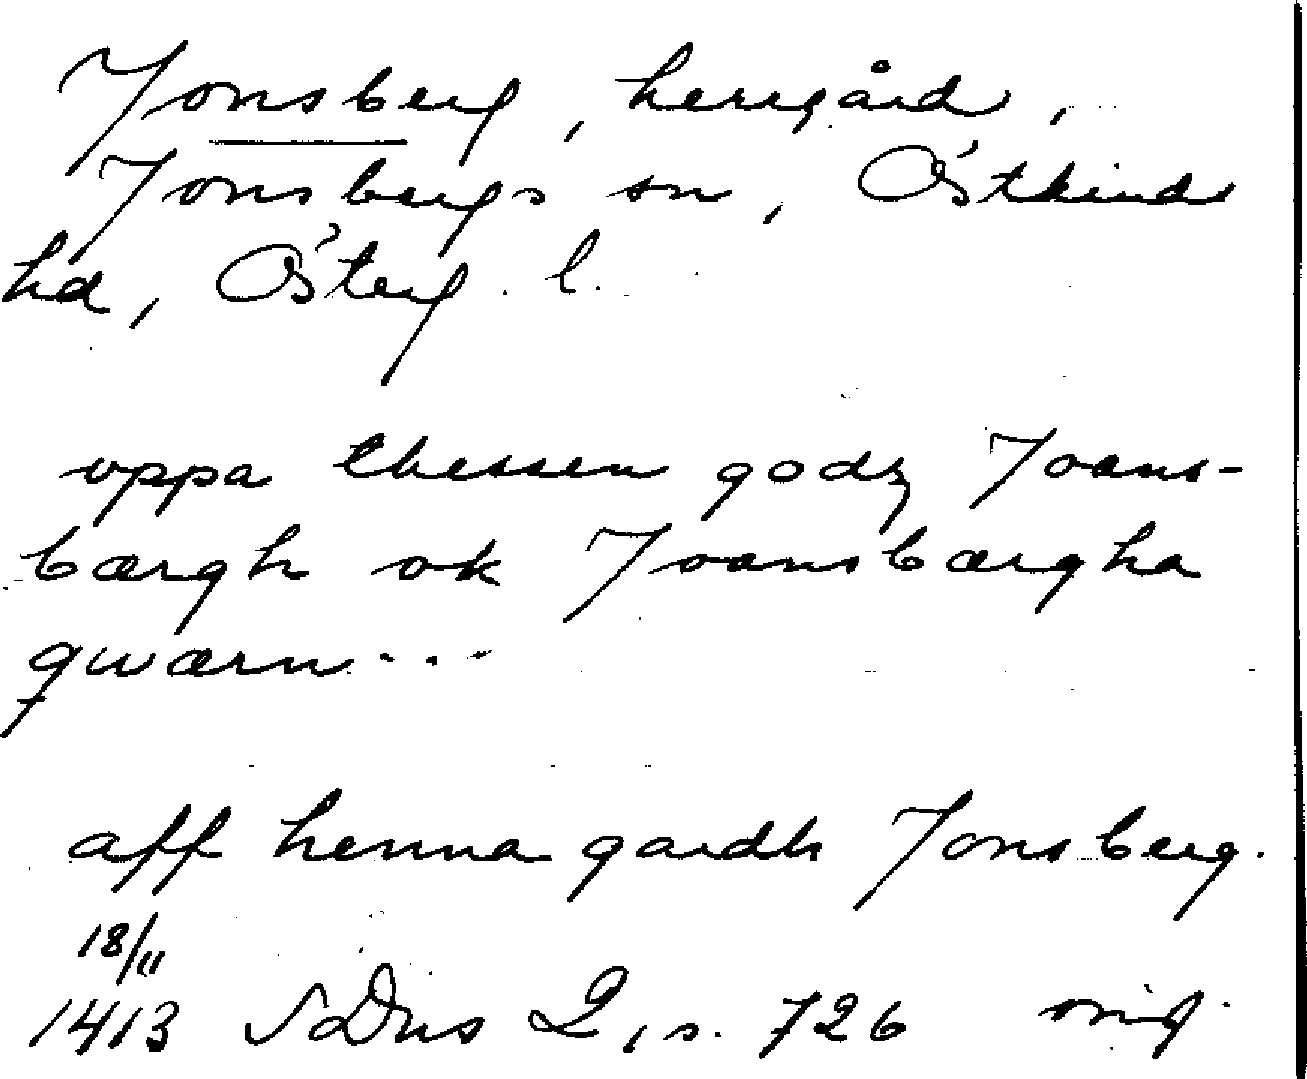 Jonsberg, herrgård,
Jonsbergs sn, Östkinds
hd, Österg. l.
vppa thessen godz Joans-
bærgh ok Joansbærgha
qwærn...
aff henna gardh Jonsberg.
18/11
1413 SDns 2, s. 726 orig.